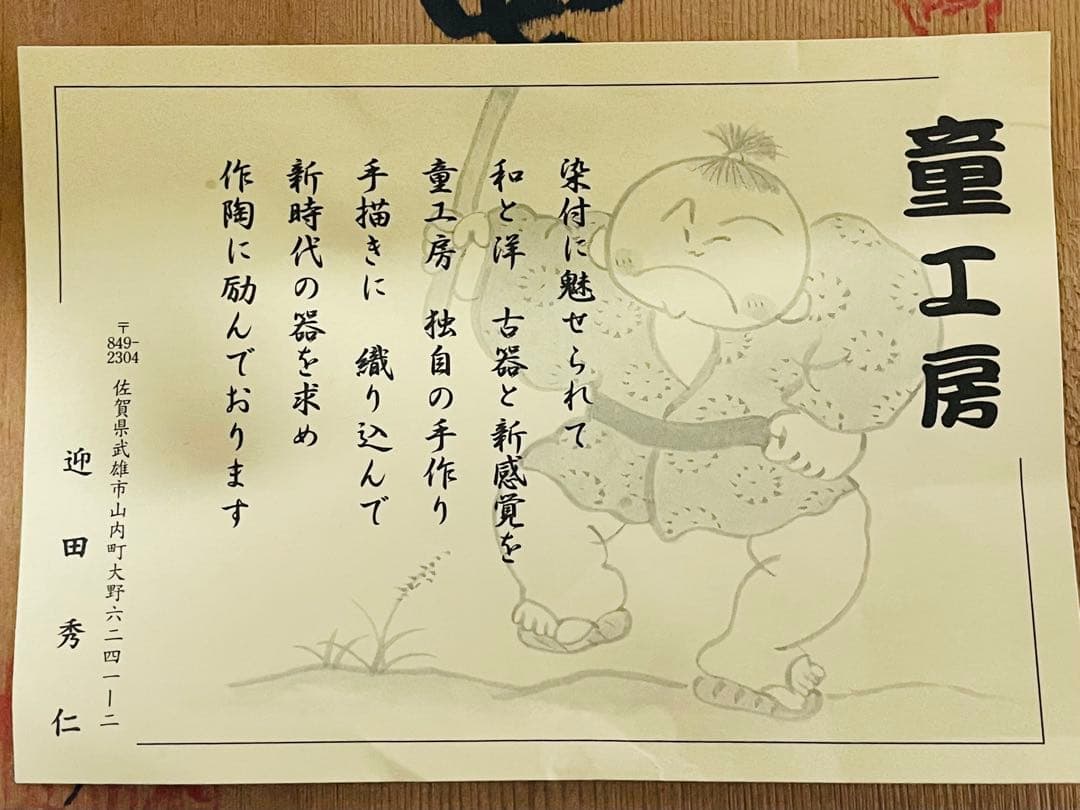 童工房
染付に魅せられて
和と洋　古器と新感覚を
童工房　独自の手作り
手描きに　織り込んで
新時代の器を求め
作陶に励んでおります
〒849-2304　佐賀県武雄市山内町大野六二四一ー二
迎田秀仁